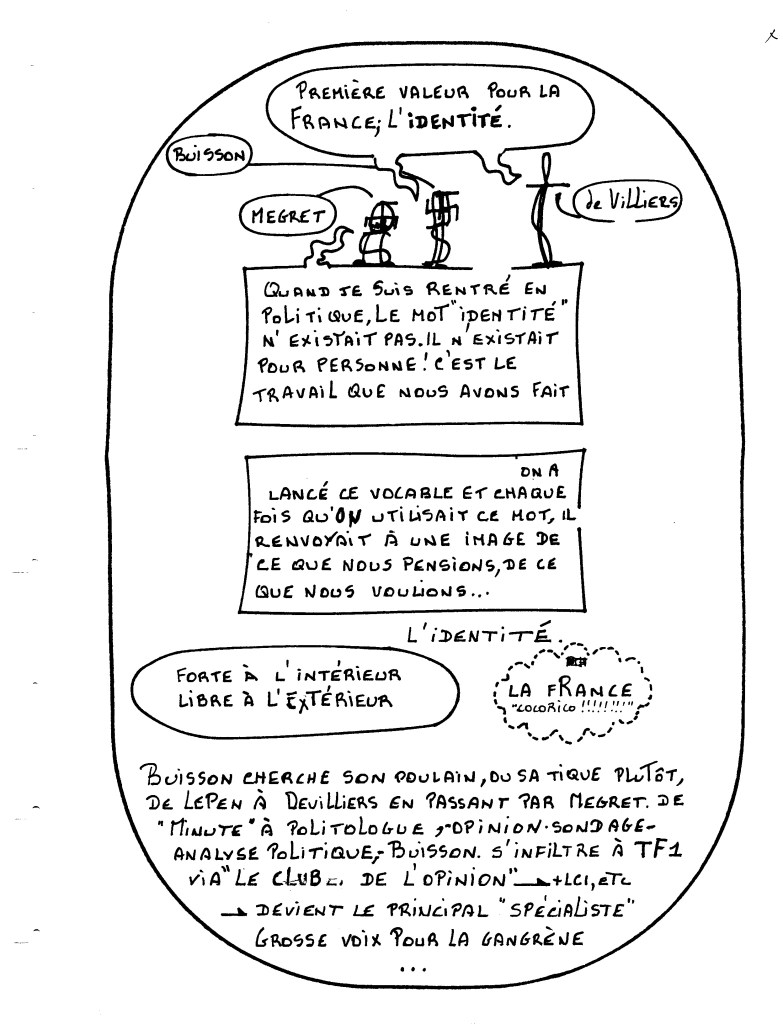 x
PREMIÈRE VALEUR POUR LA
FRANCE; L'IDENTITÉ.
BUISSON
MEGRET
de VILLIERS
QUAND JE SUIS RENTRÉ EN
POLITIQUE, LE MOT "IDENTITÉ"
N'EXISTAIT PAS. IL N'EXISTAIT
POUR PERSONNE! C'EST LE
TRAVAIL QUE NOUS AVONS FAIT
ON A
LANCÉ CE VOCABLE ET CHAQUE
FOIS QU'ON UTILISAIT CE MOT, IL
RENVOYAIT À UNE IMAGE DE
CE QUE NOUS PENSIONS, DE CE
QUE NOUS VOULIONS...
L'IDENTITÉ.
FORTE À L'INTÉRIEUR
LIBRE À L'EXTÉRIEUR
LA FRANCE
"COCORICO !!!!!!!!"
BUISSON CHERCHE SON POULAIN, OU SA TIQUE PLUTÔT,
DE LEPEN À DEVILLIERS EN PASSANT PAR MEGRET. DE
"MINUTE" À POLITOLOGUE, -OPINION-SONDAGE-
ANALYSE POLITIQUE,- BUISSON. S'INFILTRE À TF1
VIA "LE CLUB DE L'OPINION" → +LCI, ETC
→ DEVIENT LE PRINCIPAL "SPÉCIALISTE"
GROSSE VOIX POUR LA GANGRÈNE
...